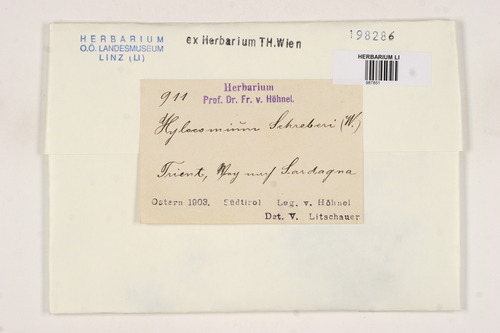 HERBARIUM
O.Ö. LANDESMUSEUM
LINZ (LI)
ex Herbarium TH.Wien
198286
HERBARIUM LI
911
Herbarium
Prof. Dr. Fr. v. Höhnel.
Hylocomium Schreberi (W.)
Trient, Weg nach Sardagna
Ostern 1903. Südtirol Leg. v. Höhnel
Det. V. Litschauer